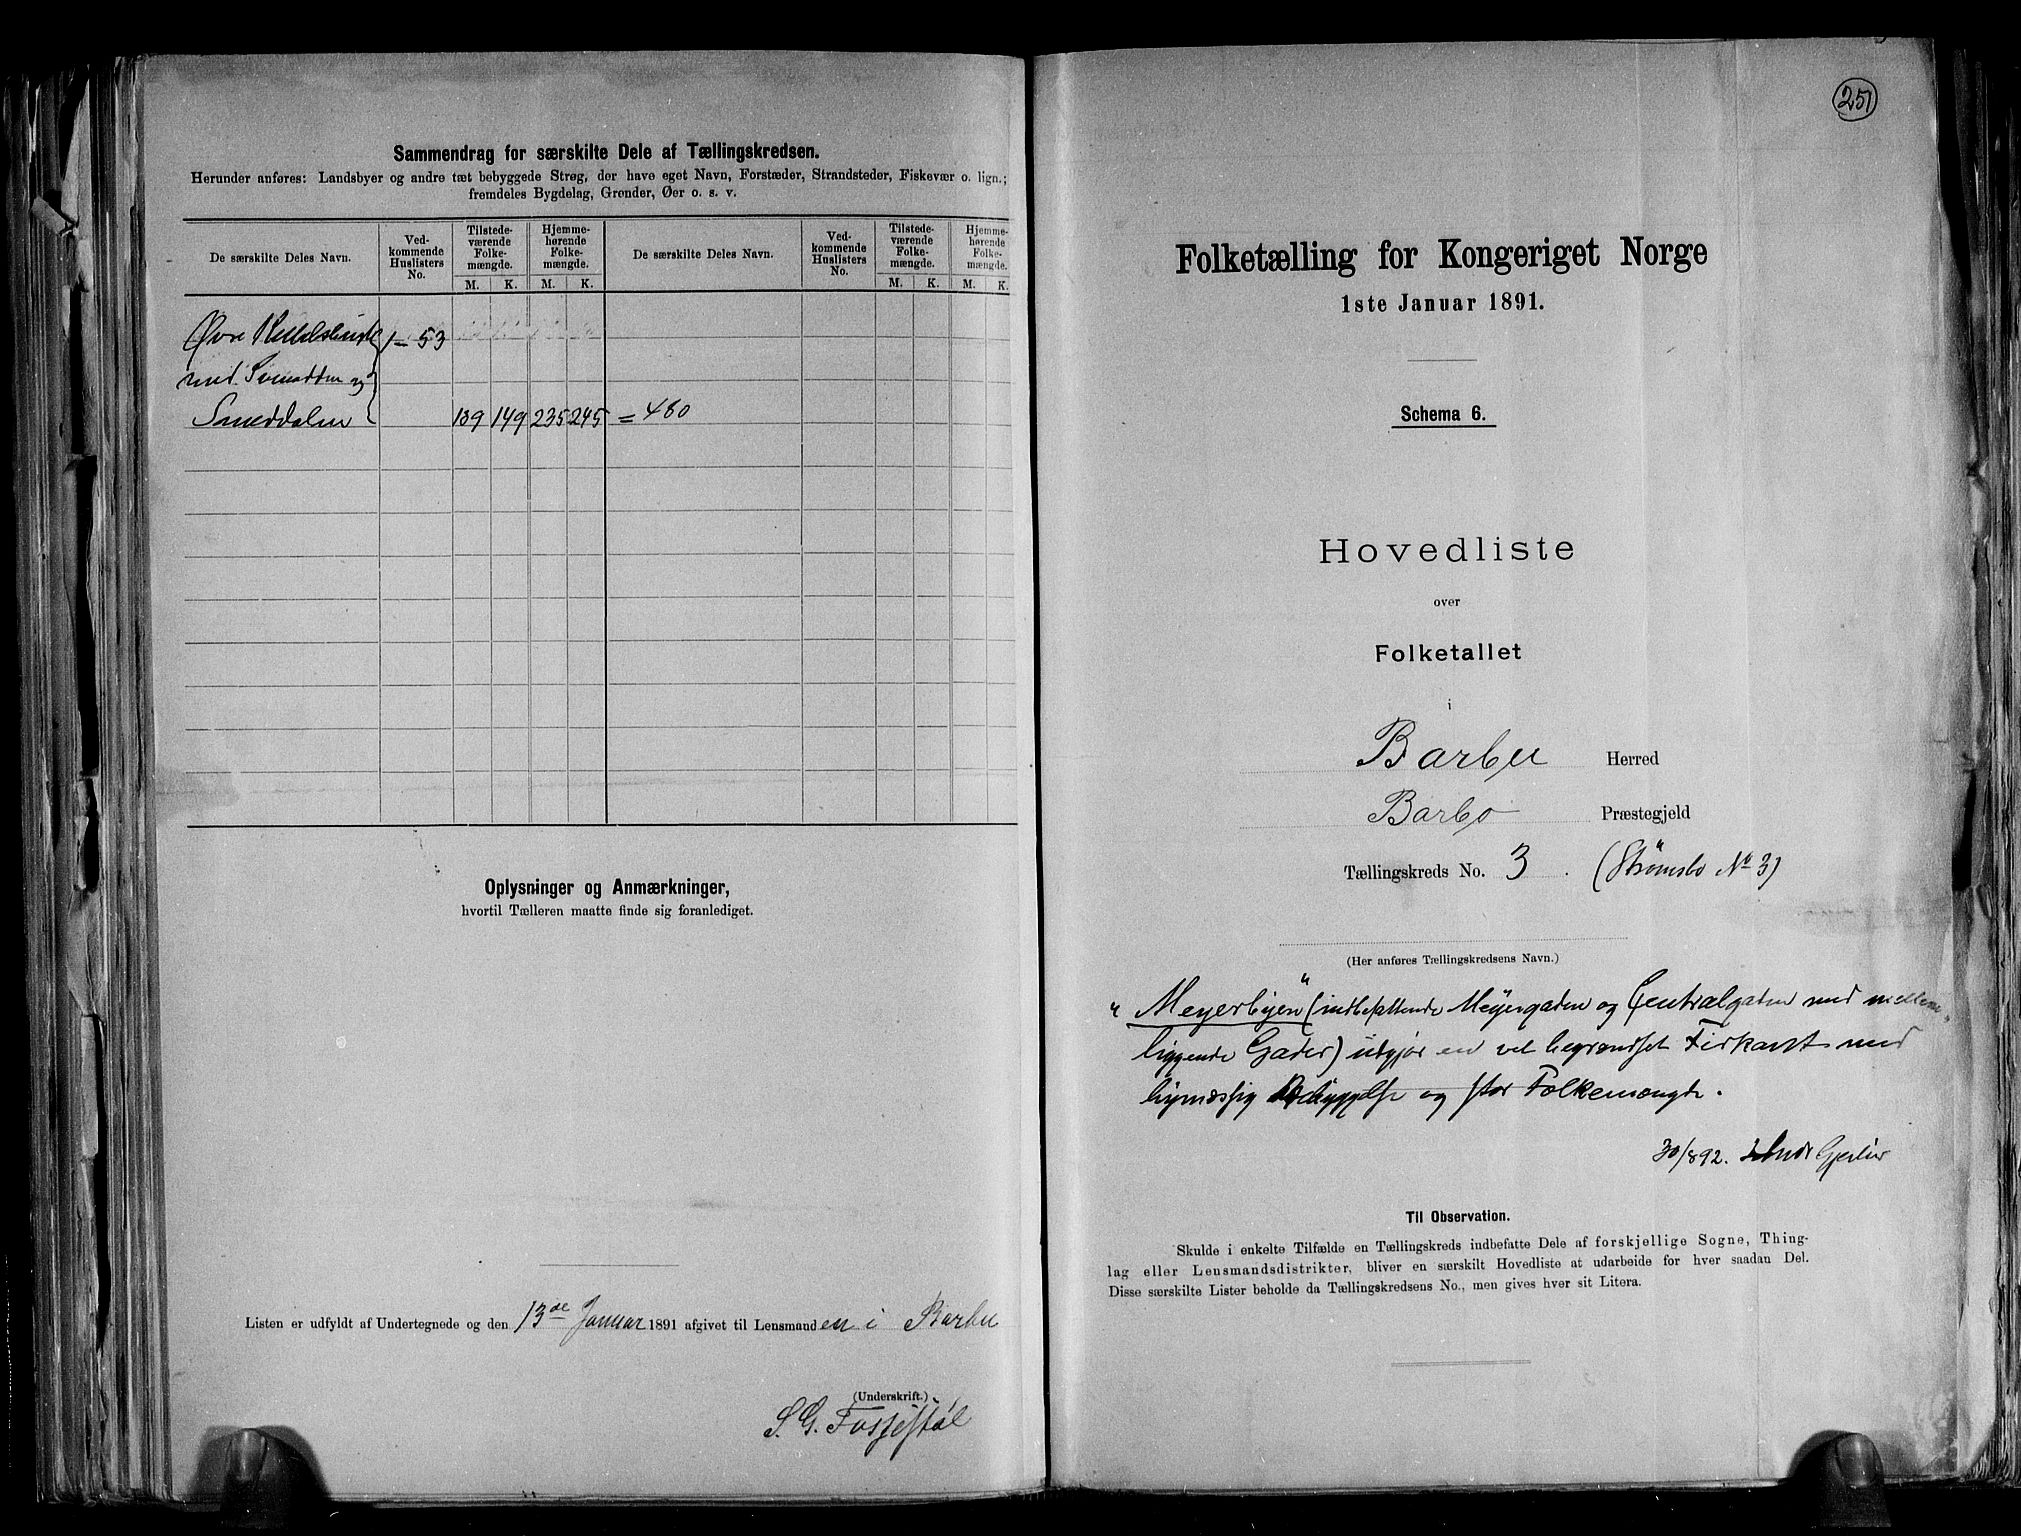 Sammendrag for særskilte Dele af Tællingskredsen.
Herunder anføres: Landsbyer og andre tæt bebyggede Strøg, der have eget Navn, Forstæder, Strandsteder, Fiskevær o. lign.;
fremdeles Bygdelag, Grender, Øer o. s. v.
De særskilte Deles Navn.
Ved-
kommende
Huslisters
No.
Tilstede-
værende
Folke-
mængde.
Hjemme-
hørende
Folke-
mængde.
M. K. M. K.
De særskilte Deles Navn.
Ved-
kommende
Huslisters
No.
Tilstede-
værende
Folke-
mængde.
Hjemme-
hørende
Folke-
mængde.
M. K. M. K.
Øvre 1–53
med
Smeddalen 139 149 235 245 = 480
Oplysninger og Anmærkninger,
hvortil Tælleren maatte finde sig foranlediget.
Listen er udfyldt af Undertegnede og den 13de Januar 1891 afgivet til Lensmanden i Barbu
(Underskrift.)
S. G. Fossestøl
251
Folketælling for Kongeriget Norge
1ste Januar 1891.
Schema 6.
Hovedliste
over
Folketallet
i
Barbu Herred
Barbo Præstegjeld
Tællingskreds No. 3. (Strømsbo No 3)
(Her anføres Tællingskredsens Navn.)
"Meyerbyen" (indbefattende Meyergaden og Centralgaden med mellem-
liggende Gader) udgjør en vel begrændset Firkant med
bymæssig Bebyggelse og stor Folkemængde.
30/8 92.
Til Observation.
Skulde i enkelte Tilfælde en Tællingskreds indbefatte Dele af forskjellige Sogne, Thing-
lag eller Lensmandsdistrikter, bliver en særskilt Hovedliste at udarbeide for hver saadan Del.
Disse særskilte Lister beholde da Tællingskredsens No., men gives hver sit Litera.